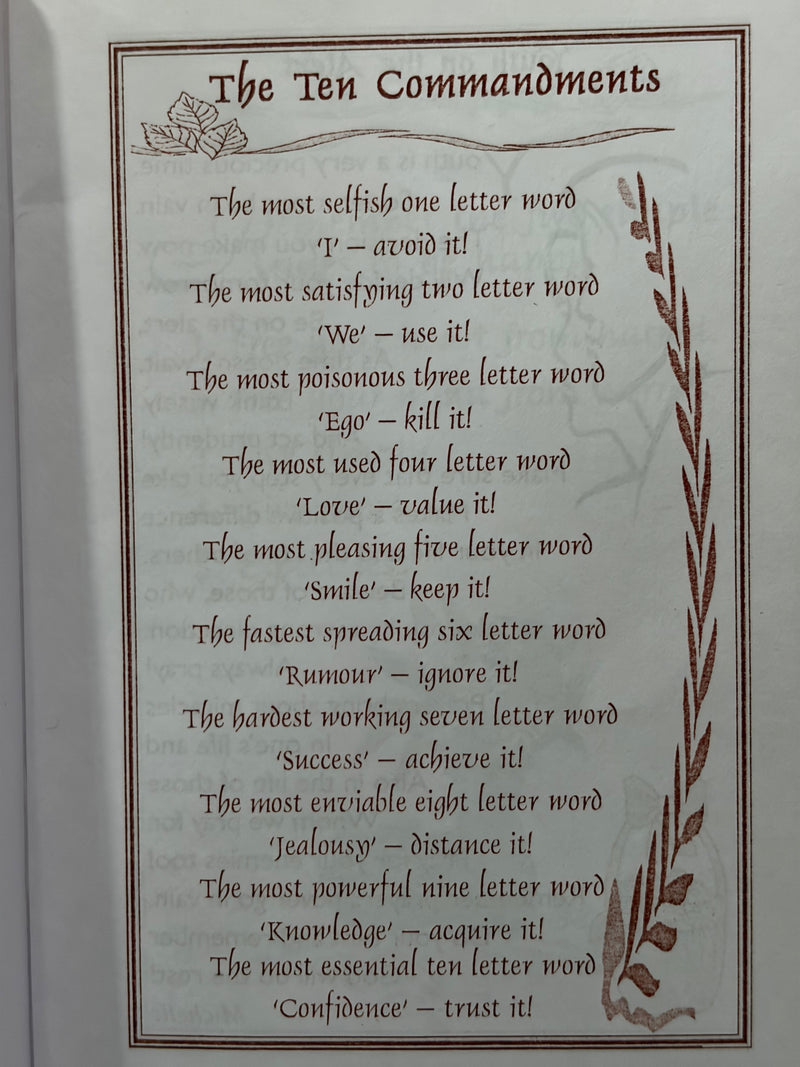 The Ten Commandments
The most selfish one letter word
'I' – avoid it!
The most satisfying two letter word
'We' – use it!
The most poisonous three letter word
'Ego' – kill it!
The most used four letter word
'Love' – value it!
The most pleasing five letter word
'Smile' – keep it!
The fastest spreading six letter word
'Rumour' – ignore it!
The hardest working seven letter word
'Success' – achieve it!
The most enviable eight letter word
'Jealousy' – distance it!
The most powerful nine letter word
'Knowledge' – acquire it!
The most essential ten letter word
'Confidence' – trust it!